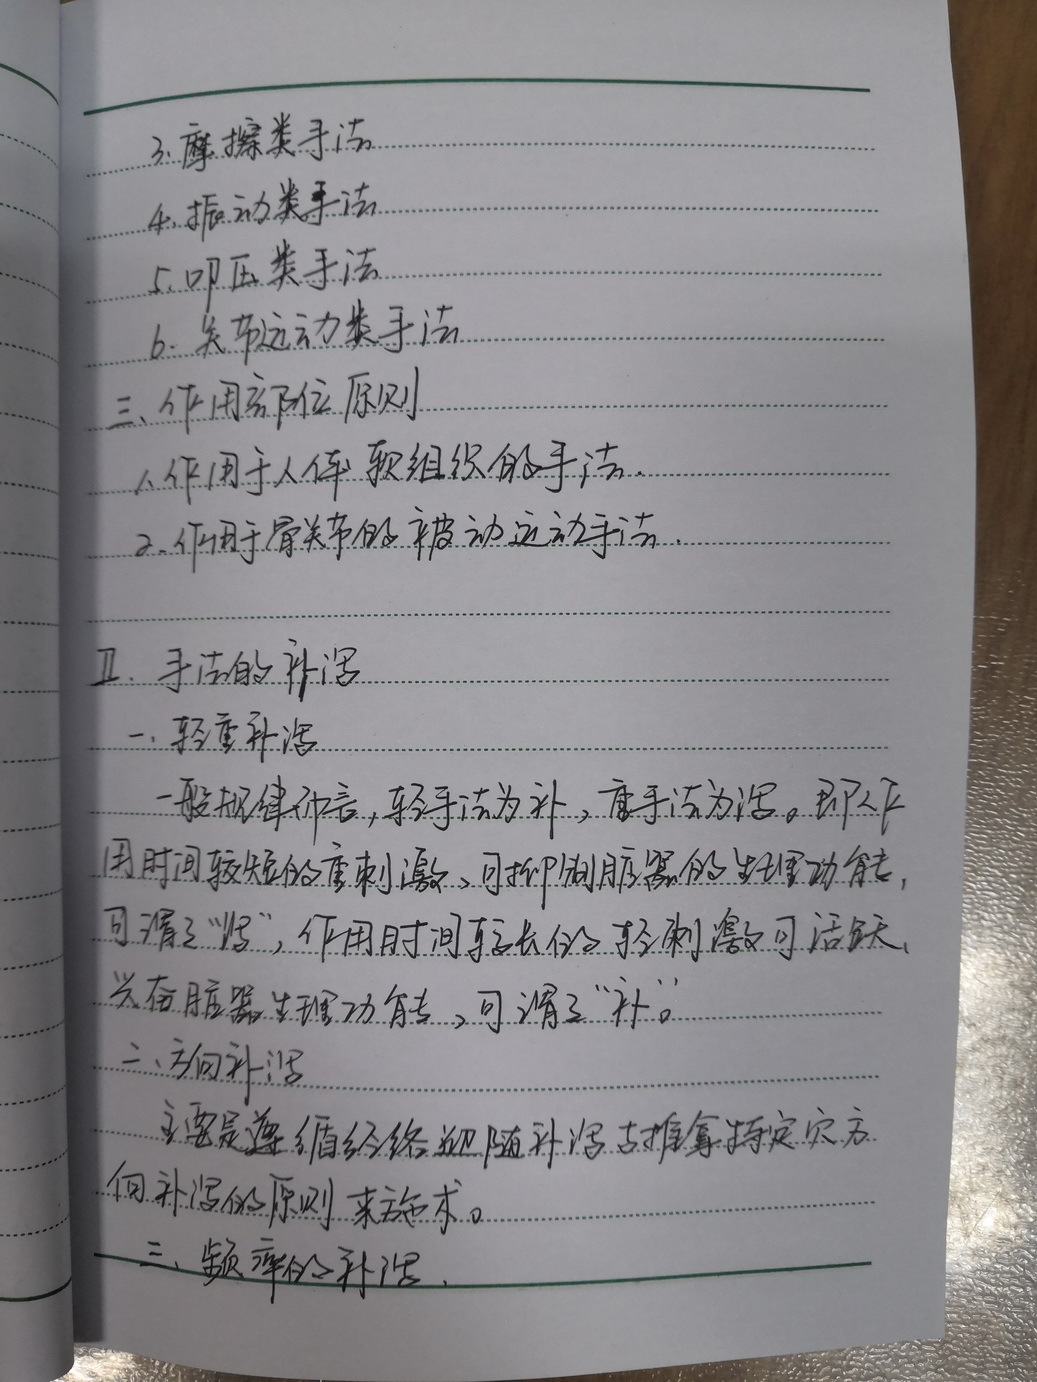 3. 摩擦类手法
4. 振动类手法
5. 叩压类手法
6. 关节运动类手法
三、作用部位原则
1. 作用于人体软组织的手法.
2. 作用于骨关节的被动运动手法.
Ⅱ. 手法的补泻
一、轻重补泻
一般规律而言,轻手法为补,重手法为泻。即作
用时间较短的重刺激,可抑制脏器的生理功能,
可谓之“泻”,作用时间较长的轻刺激可活跃、
兴奋脏器生理功能,可谓之“补”。
二、方向补泻
主要是遵循经络迎随补泻与推拿特定穴方
向补泻的原则来施术。
三、频率的补泻.